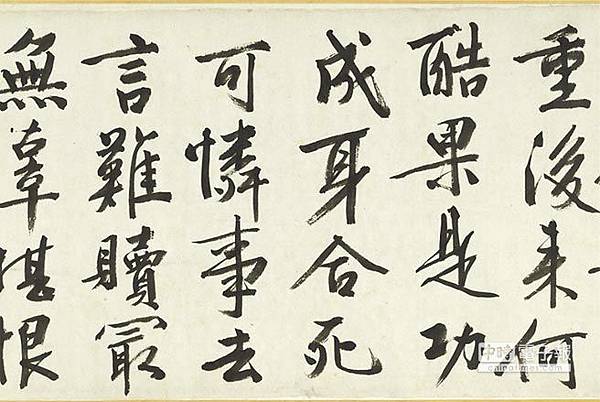 重後来何
酷果是功
成身合死
可憐事去
言難贖冣
無辜堪恨
中時電子報
chinatimes.com